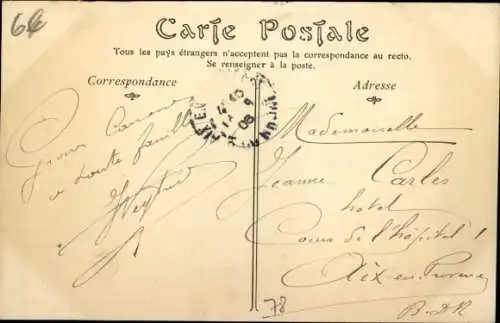 6€
Carte Postale
Tous les pays étrangers n'acceptent pas la correspondance au recto.
Se renseigner à la poste.
Correspondance
Adresse
a toute famille
Mademoiselle
Jeanne Carles
hotel
Cours de l'hôpital 1
Aix-en-Provence
B-DR
78